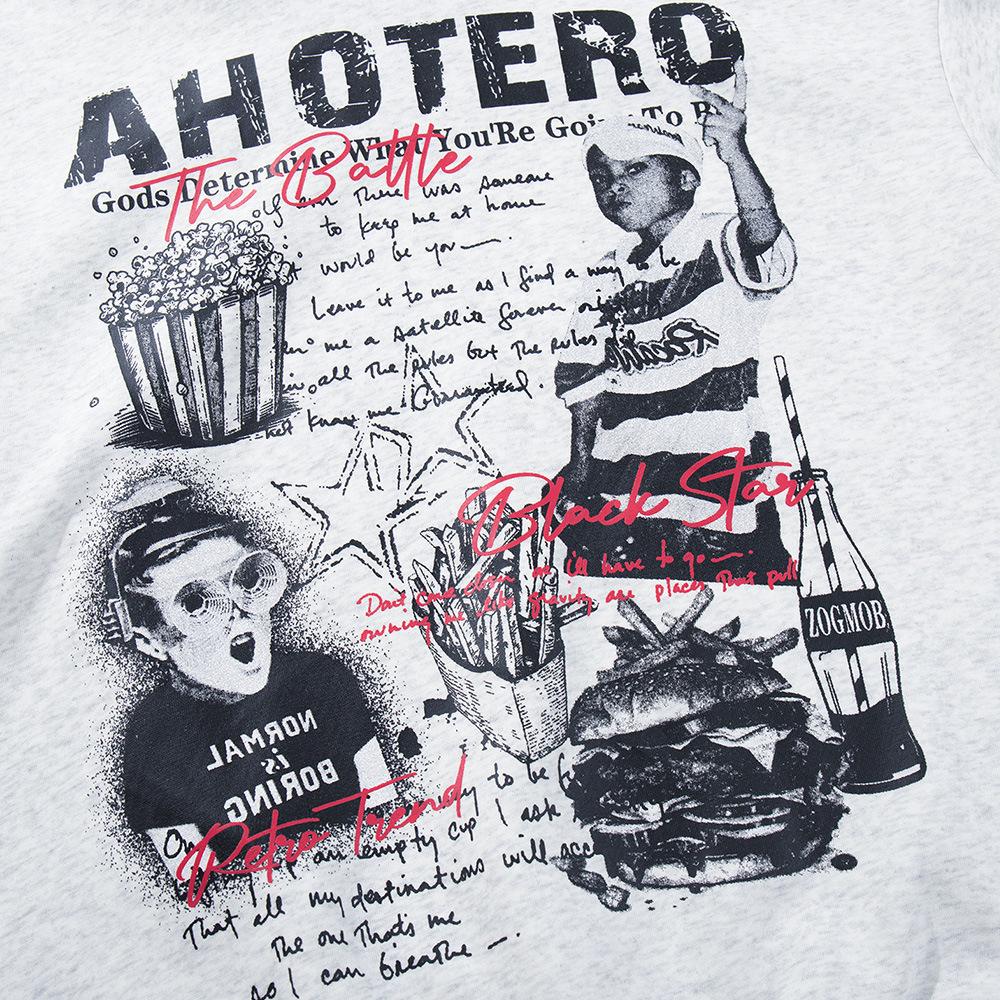 AHOTERO
Gods Determine What You'Re Going To B
The Battle
If ever There was someone
to keep me at home
t would be you—.
Leave it to me as I find a way to be
me a satellite forever
all The rules but The rules
knew me Guaranteed.
Pacific
Black Star
Don't come down or i'll have to go—.
owning me like gravity are places That pull
ZOGMOB
NORMAL
is
BORING
Retro Trend
On
to be f
an empty cup I ask
That all my destinations will acc
The one That's me
so I can breathe —.